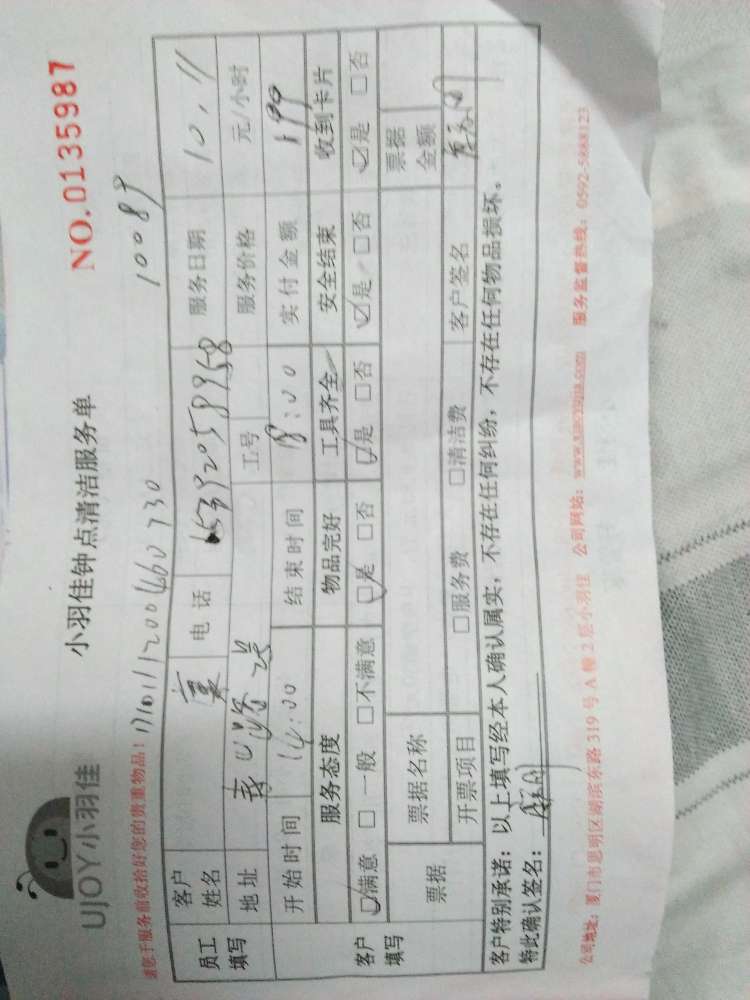 UJOY小羽佳
小羽佳钟点清洁服务单
NO.0135987
请您于服务前收拾好您的贵重物品！
10089
员工填写 客户姓名 电话 服务日期 10.11
地址 工号 服务价格 元/小时
客户填写 开始时间 14:00 结束时间 18:00 实付金额 199
服务态度 物品完好 工具齐全 安全结束 收到卡片
☑满意 □一般 □不满意 ☑是 □否 ☑是 □否 ☑是 □否 ☑是 □否
票据 票据名称 票据金额
开票项目 □服务费 □清洁费 客户签名
客户特别承诺：以上填写经本人确认属实，不存在任何纠纷，不存在任何物品损坏。
特此确认签名：
公司地址：厦门市思明区湖滨东路319号A幢2层小羽佳 公司网站：www.xiaoyujia.com 服务监督热线：0592-5888123